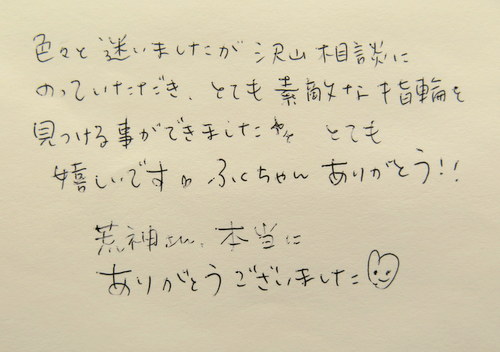 色々と迷いましたが沢山相談に
のっていただき、とても素敵な指輪を
見つける事ができました とても
嬉しいです ふくちゃんありがとう!!
荒神さん、本当に
ありがとうございました